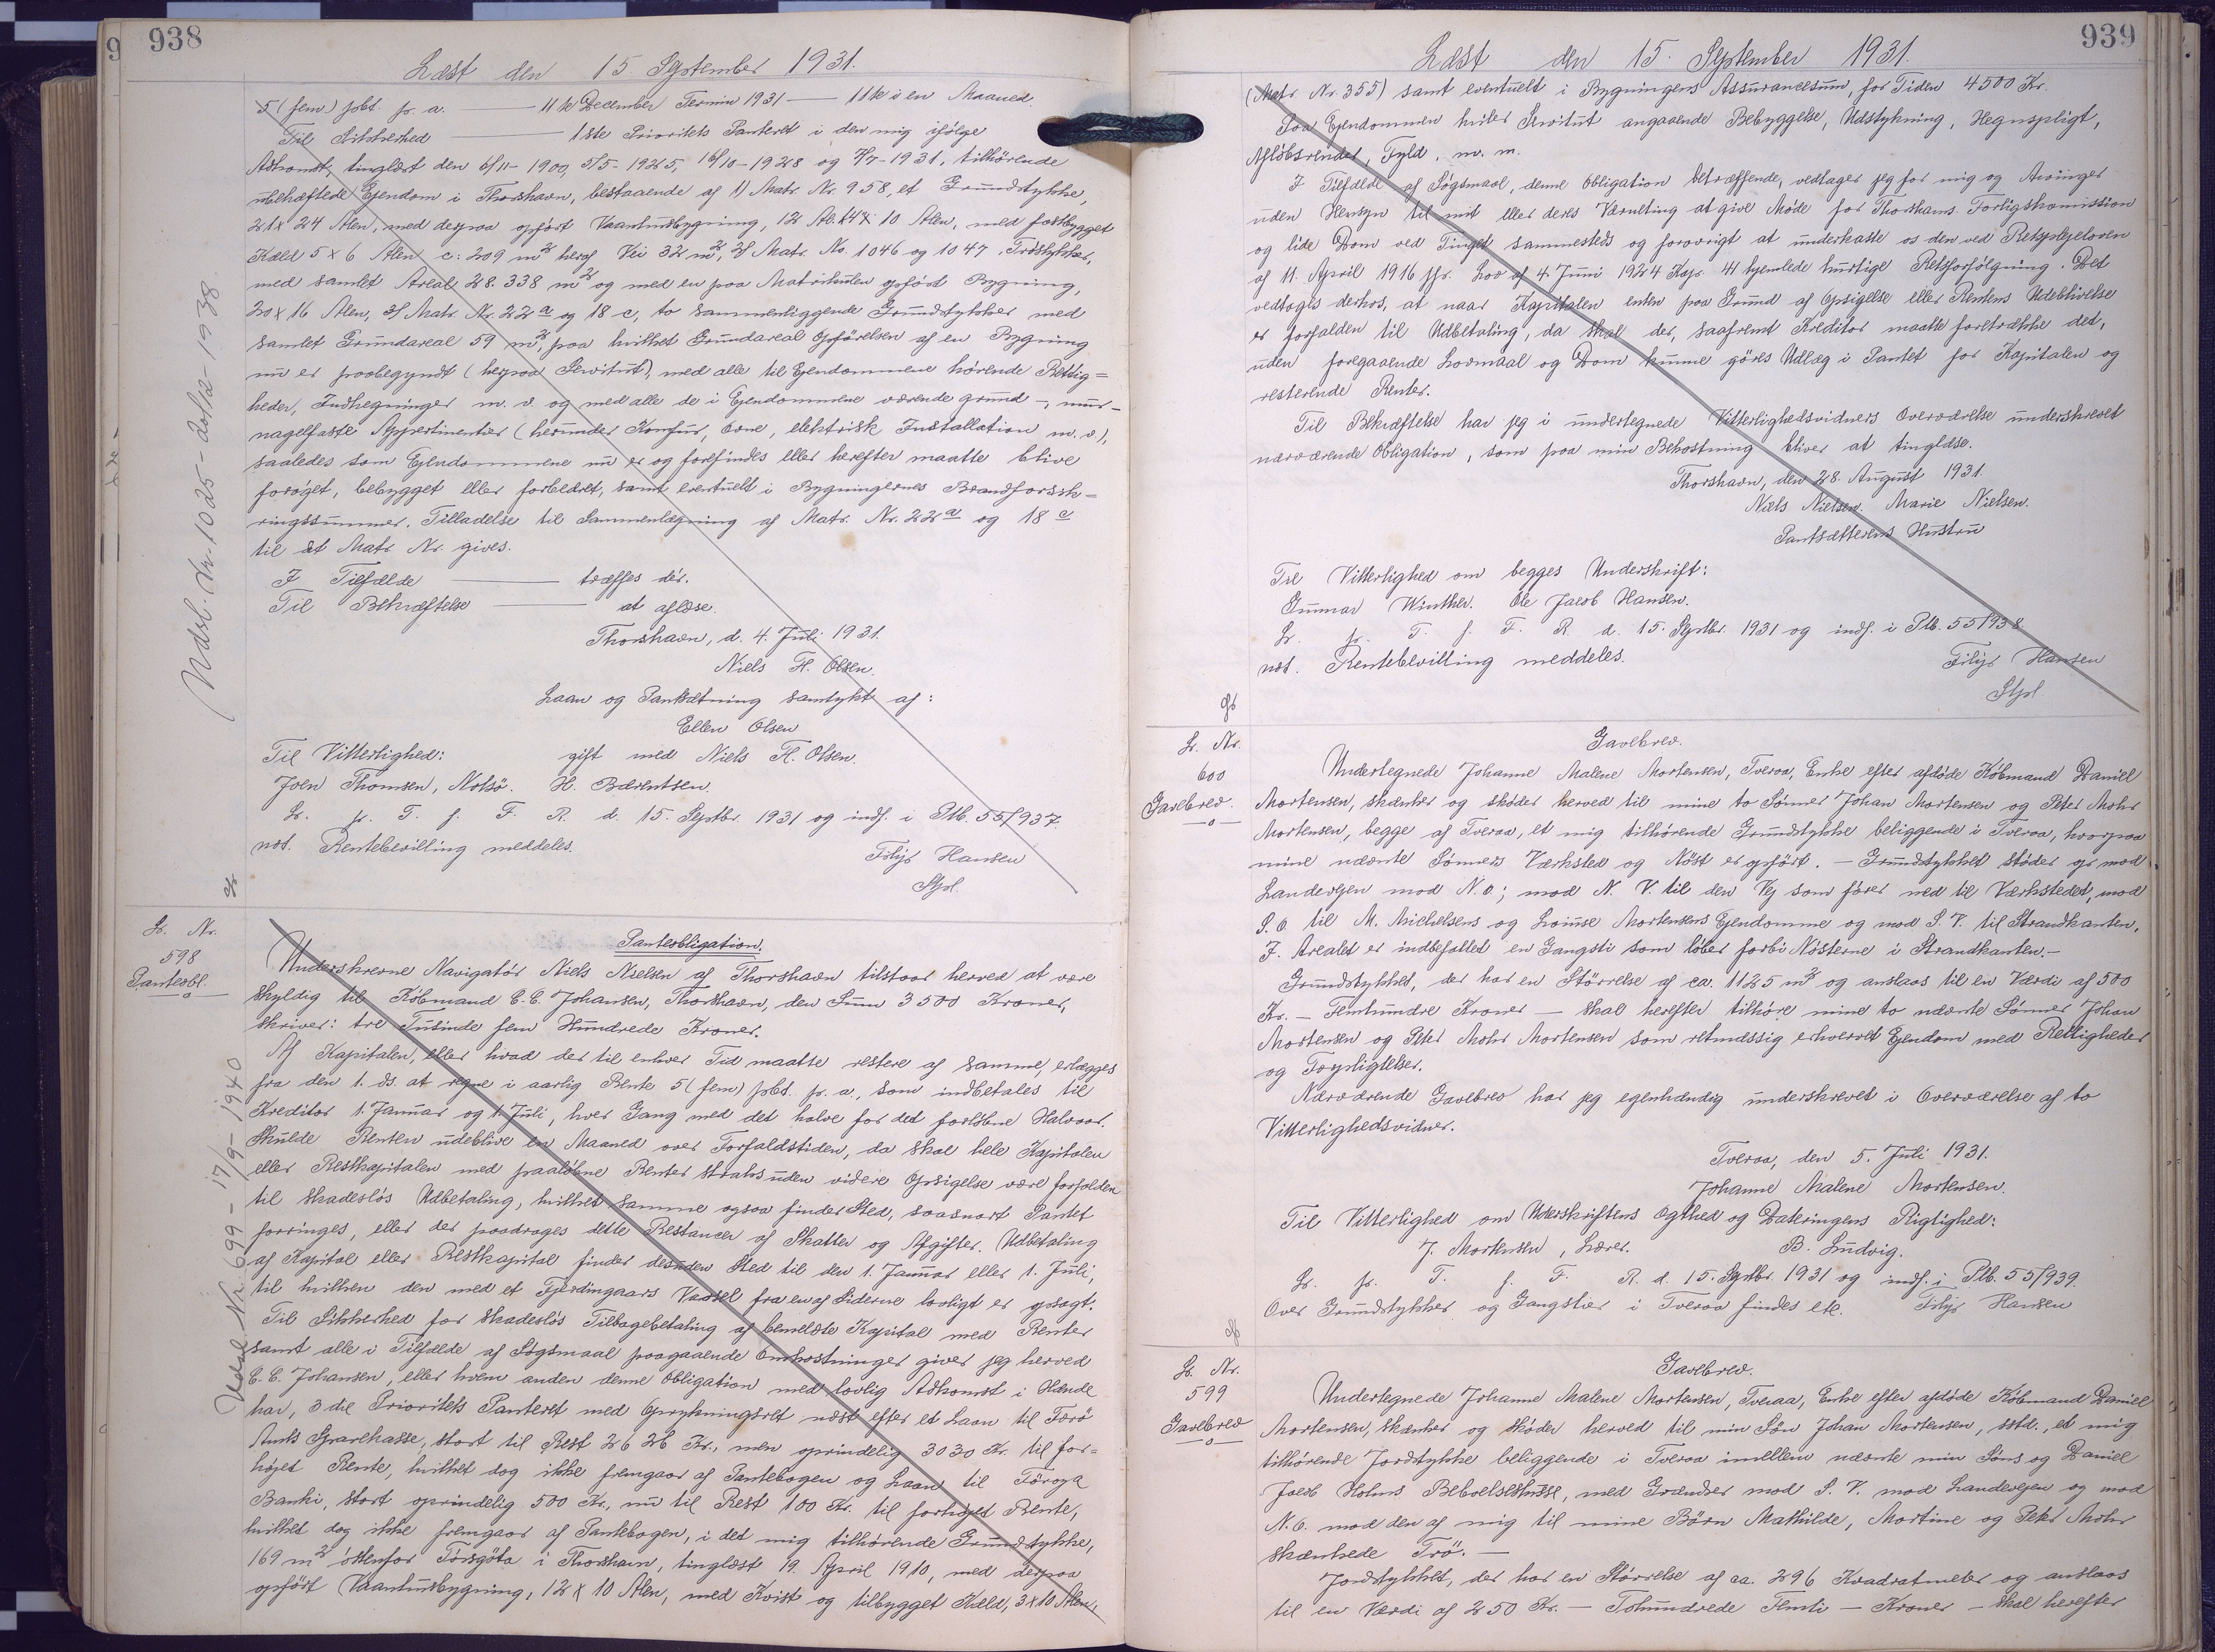 938
Læst den 15. September 1931.
5 (fem) pCt. p. a. — 11te December Termin 1931 — 11te i en Maaned.
Til Sikkerhed — 1ste Prioritets Panteret i den mig ifølge
Adkomst, tinglæst den 6/11-1909, 5/5-1925, 16/10-1928 og 7/7-1931, tilhørende
ubehæftede Ejendom i Thorshavn, bestaaende af 1) Matr. Nr. 958, et Grundstykke,
21 x 24 Alen, med derpaa opført Vaaningsbygning, 12 Al. x 10 Alen, med fastbygget
Kæld 5 x 6 Alen c: 209 m² heraf Vei 32 m², 2) Matr. No. 1046 og 1047, Trøstykker,
med samlet Areal 28.338 m² og med en paa Matrikulen opført Bygning,
20 x 16 Alen, 3) Matr. Nr. 22 a og 18 c, to sammenliggende Grundstykker med
samlet Grundareal 59 m², paa hvilket Grundareal Opførelsen af en Bygning
nu er paabegyndt (herpaa Servitut), med alle til Ejendommene hørende Rettig=
heder, Indhegninger m. v. og med alle de i Ejendommene værende grund-, mur-
nagelfaste Appertinentier (herunder Komfur, Ovne, elektrisk Installation m. v.),
saaledes som Ejendommene nu er og forefindes eller herefter maatte blive
forøget, bebygget eller forbedret, samt eventuelt i Bygningernes Brandforsik=
ringssummer. Tilladelse til Sammenlægning af Matr. Nr. 22 a og 18 c
til et Matr. Nr. gives.
I Tilfælde — træffes dér.
Til Bekræftelse — at aflæse.
Thorshavn, d. 4. Juli 1931.
Niels H. Olsen.
Laan og Pantsætning samtykt af:
Ellen Olsen
Til Vitterlighed: gift med Niels H. Olsen.
Joen Thomsen, Nolsø. H. Bærentsen.
L. p. T. f. F. R. d. 15. Septbr. 1931 og indf. i Ptb. 55/937.
not. Rentebevilling meddeles.
Filip Hansen
Stpl.
Udsl. Nr. 1025 - 20/12-1938
L. Nr.
598
Panteobl.
Panteobligation.
Underskrevne Navigatør Niels Nielsen af Thorshavn tilstaar herved at være
skyldig til Købmand C. C. Johansen, Thorshavn, den Sum 3500 Kroner,
skriver: tre Tusinde fem Hundrede Kroner.
Af Kapitalen, eller hvad der til enhver Tid maatte restere af samme, erlægges
fra den 1. ds. at regne i aarlig Rente 5 (fem) pCt. p. a., som indbetales til
Kreditor 1. Januar og 1. Juli, hver Gang med det halve for det forløbne Halvaar.
Skulde Renten udeblive en Maaned over Forfaldstiden, da skal hele Kapitalen
eller Restkapitalen med paaløbne Renter straks uden videre Opsigelse være forfalden
til skadesløs Udbetaling, hvilket samme ogsaa finder Sted, saasnart Pantet
forringes, eller der paadrages dette Restancer af Skatter og Afgifter. Udbetaling
af Kapital eller Restkapital finder desuden Sted til den 1. Januar eller 1. Juli,
til hvilken den med et Fjerdingaars Varsel fra en af Siderne lovligt er opsagt.
Til Sikkerhed for skadesløs Tilbagebetaling af bemeldte Kapital med Renter
samt alle i Tilfælde af Søgsmaal paagaaende Omkostninger giver jeg herved
C. C. Johansen, eller hvem anden denne Obligation med lovlig Adkomst i Hænde
har, 3die Prioritets Panteret med Oprykningsret næst efter et Laan til Færø
Amts Sparekasse, stort til Rest 2626 Kr., men oprindelig 3030 Kr. til for=
højet Rente, hvilket dog ikke fremgaar af Pantebogen og Laan til Føroya
Banki, stort oprindelig 500 Kr., nu til Rest 100 Kr. til forhøjet Rente,
hvilket dog ikke fremgaar af Pantebogen, i det mig tilhørende Grundstykke,
169 m² østenfor Tórsgøta i Thorshavn, tinglæst 19. April 1910, med derpaa
opført Vaaningsbygning, 12 x 10 Alen, med Kvist og tilbygget Kæld, 3 x 10 Alen,
Udsl. Nr. 699 - 17/9-1940
939
Læst den 15. September 1931.
(Matr. Nr. 355) samt eventuelt i Bygningens Assurancesum, for Tiden 4500 Kr.
Paa Ejendommen hviler Servitut angaaende Bebyggelse, Udstykning, Hegnspligt,
Afløbsrender, Fyld, m. m.
I Tilfælde af Søgsmaal, denne Obligation betræffende, vedtager jeg for mig og Arvinger
uden Hensyn til mit eller deres Værneting at give Møde for Thorshavns Forligskomission
og lide Dom ved Tinget sammesteds og forøvrigt at underkaste os den ved Retsplejeloven
af 11. April 1916 jfr. Lov af 4. Juni 1924 Kap. 41 hjemlede hurtige Retsforfølgning. Det
vedtages derhos, at naar Kapitalen enten paa Grund af Opsigelse eller Rentens Udeblivelse
er forfalden til Udbetaling, da skal der, saafremt Kreditor maatte foretrække det,
uden foregaaende Lovmaal og Dom kunne gøres Udlæg i Pantet for Kapitalen og
resterende Renter.
Til Bekræftelse har jeg i undertegnede Vitterlighedsvidners Overværelse underskrevet
nærværende Obligation, som paa min Bekostning bliver at tinglæse.
Thorshavn, den 28. August 1931.
Niels Nielsen. Marie Nielsen.
Pantsætterens Hustru
Til Vitterlighed om begges Underskrift:
Gunnar Winther. Ole Jacob Hansen.
L. p. T. f. F. R. d. 15. Septbr. 1931 og indf. i Ptb. 55/938
not. Rentebevilling meddeles.
Filip Hansen
Stpl.
L. Nr.
600
Gavebrev.
Gavebrev.
Undertegnede Johanne Malene Mortensen, Tveraa, Enke efter afdøde Købmand Daniel
Mortensen, skænker og skøder herved til mine to Sønner Johan Mortensen og Peter Mohr
Mortensen, begge af Tveraa, et mig tilhørende Grundstykke beliggende i Tveraa, hvorpaa
mine nævnte Sønners Værksted og Nøst er opført. — Grundstykket støder op mod
Landevejen mod N. Ø.; mod N. V. til den Vej som fører ned til Værkstedet, mod
S. Ø. til M. Michelsens og Louise Mortensens Ejendomme og mod S. V. til Strandkanten.
I Arealet er indbefattet en Gangsti som løber forbi Nøsterne i Strandkanten.—
Grundstykket, der har en Størrelse af ca. 1125 m² og anslaas til en Værdi af 500
Kr. — Femhundre Kroner — skal herefter tilhøre mine to nævnte Sønner Johan
Mortensen og Peter Mohr Mortensen som retmæssig erhvervet Ejendom med Rettigheder
og Forpligtelser.
Nærværende Gavebrev har jeg egenhændig underskrevet i Overværelse af to
Vitterlighedsvidner.
Tveraa, den 5. Juli 1931.
Johanne Malene Mortensen.
Til Vitterlighed om Underskriftens Ægthed og Dateringens Rigtighed:
J. Mortensen, Lærer. B. Ludvig.
L. p. T. f. F. R. d. 15. Septbr. 1931 og indf. i Ptb. 55/939.
Over Grundstykker og Gangstier i Tveraa findes etc. Filip Hansen
L. Nr.
599
Gavebrev
Gavebrev.
Undertegnede Johanne Malene Mortensen, Tveraa, Enke efter afdøde Købmand Daniel
Mortensen, skænker og skøder herved til min Søn Johan Mortensen, sstd., et mig
tilhørende Jordstykke beliggende i Tveraa imellem nævnte min Søns og Daniel
Jacob Holms Beboelseshuse, med Grænser mod S. V. mod Landevejen og mod
N. Ø. mod den af mig til mine Børn Mathilde, Martine og Peter Mohr
skænkede Trø. —
Jordstykket, der har en Størrelse af ca. 296 Kvadratmeter og anslaas
til en Værdi af 250 Kr. — Tohundrede Femti — Kroner — skal herefter